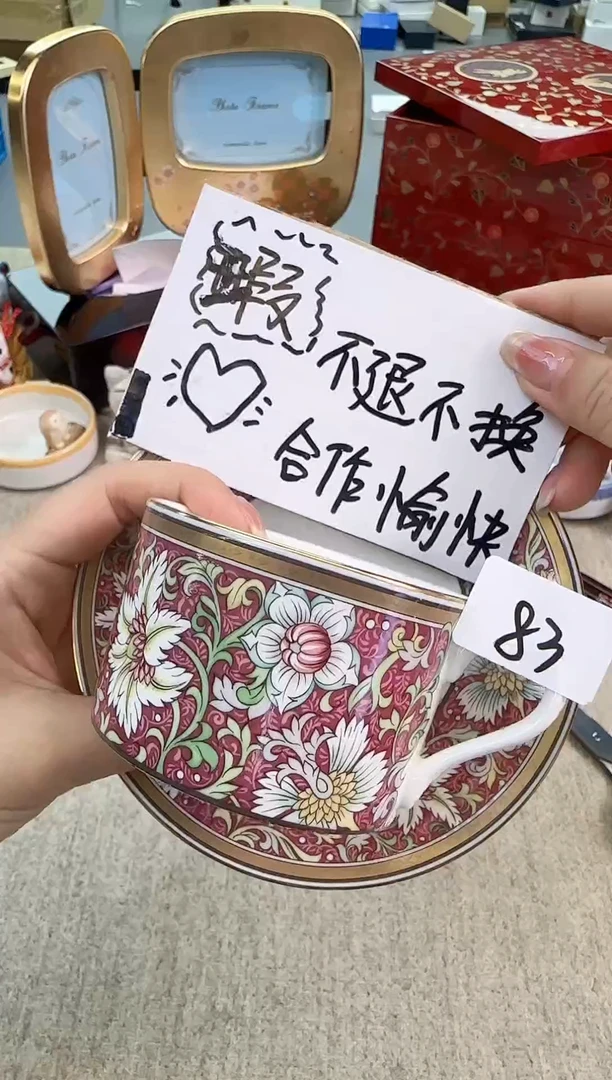 Photo Frame
Photo Frame
蝦
不退不换
合作愉快
83